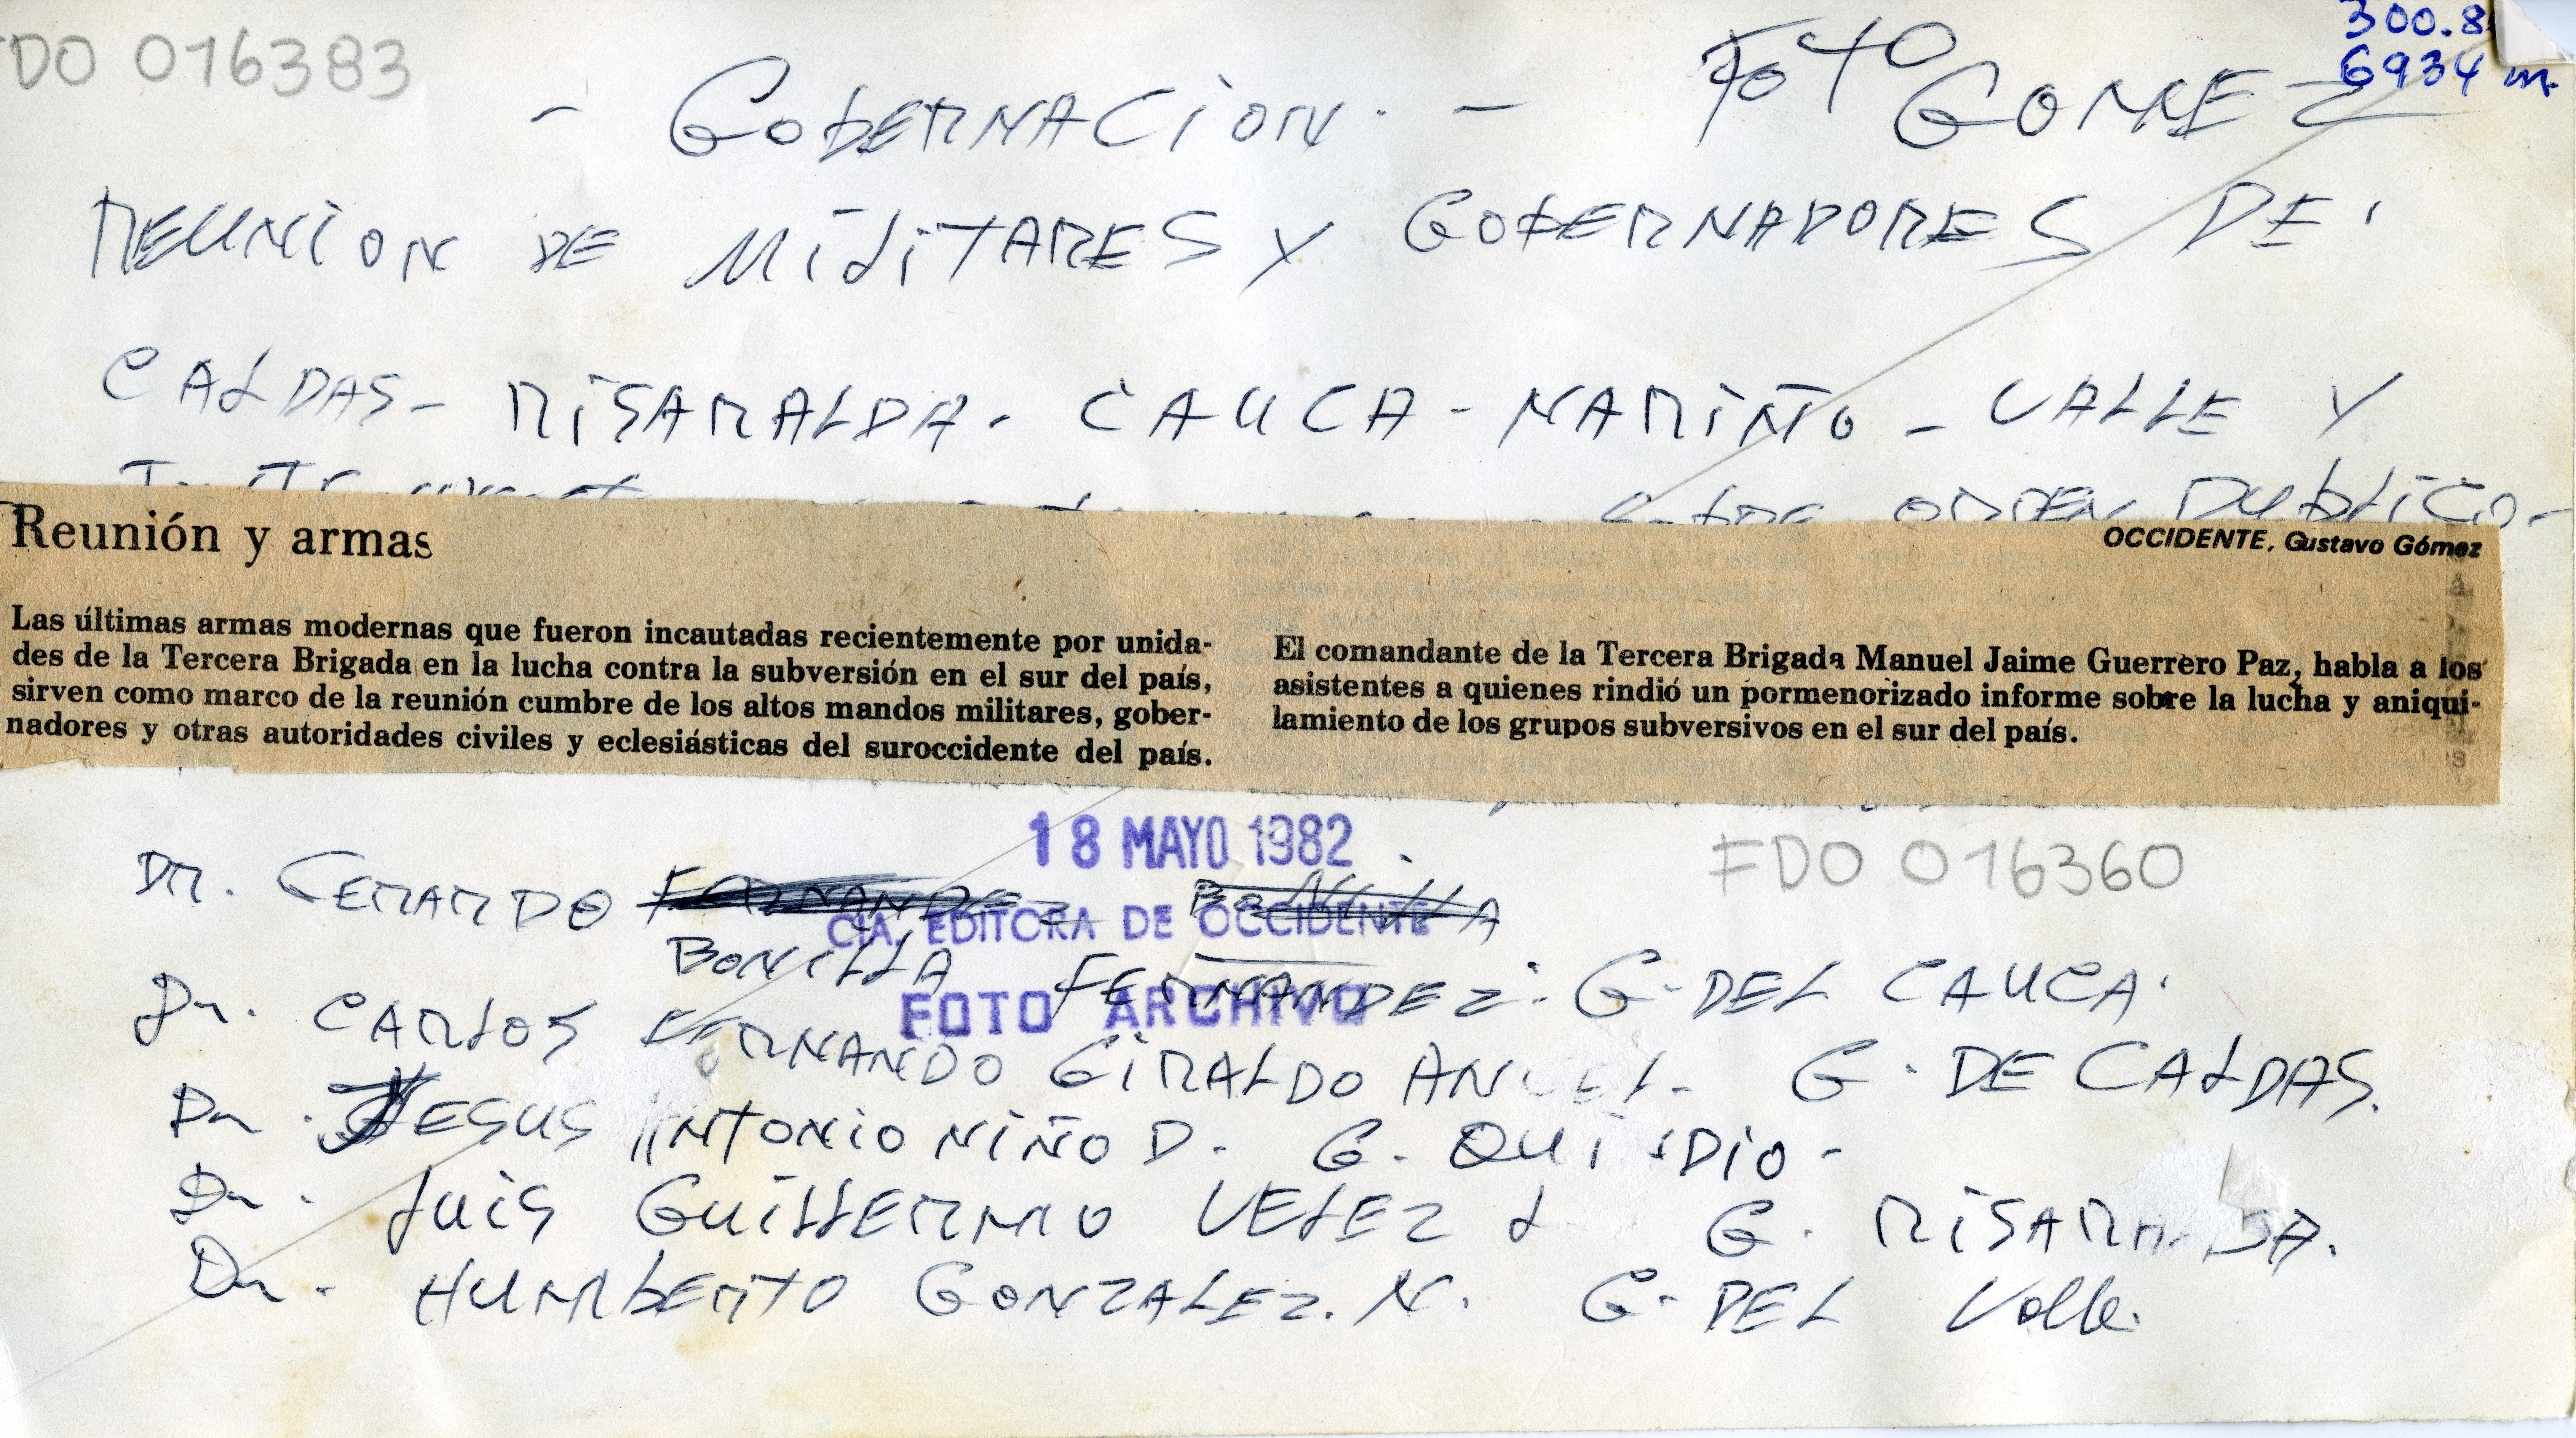 DO 016383
300.8
6934 m.
- GOBERNACION. - FOTO GOMEZ
REUNION DE MILITARES Y GOBERNADORES DE
CALDAS - RISARALDA - CAUCA - NARIÑO - VALLE Y
ORDEN PUBLICO -
Reunión y armas
OCCIDENTE, Gustavo Gómez
Las últimas armas modernas que fueron incautadas recientemente por unida-
des de la Tercera Brigada en la lucha contra la subversión en el sur del país,
sirven como marco de la reunión cumbre de los altos mandos militares, gober-
nadores y otras autoridades civiles y eclesiásticas del suroccidente del país.
El comandante de la Tercera Brigada Manuel Jaime Guerrero Paz, habla a los
asistentes a quienes rindió un pormenorizado informe sobre la lucha y aniqui-
lamiento de los grupos subversivos en el sur del país.
18 MAYO 1982
FDO 016360
CIA. EDITORA DE OCCIDENTE
FOTO ARCHIVO
DR. GERARDO FERNANDEZ BONILLA
BONILLA FERNANDEZ. G. DEL CAUCA.
Dr. CARLOS FERNANDO GIRALDO ANGEL - G. DE CALDAS.
Dr. JESUS ANTONIO NIÑO D. G. QUINDIO -
Dr. LUIS GUILLERMO VELEZ G. RISARALDA.
Dr. HUMBERTO GONZALEZ. N. G. DEL Valle.